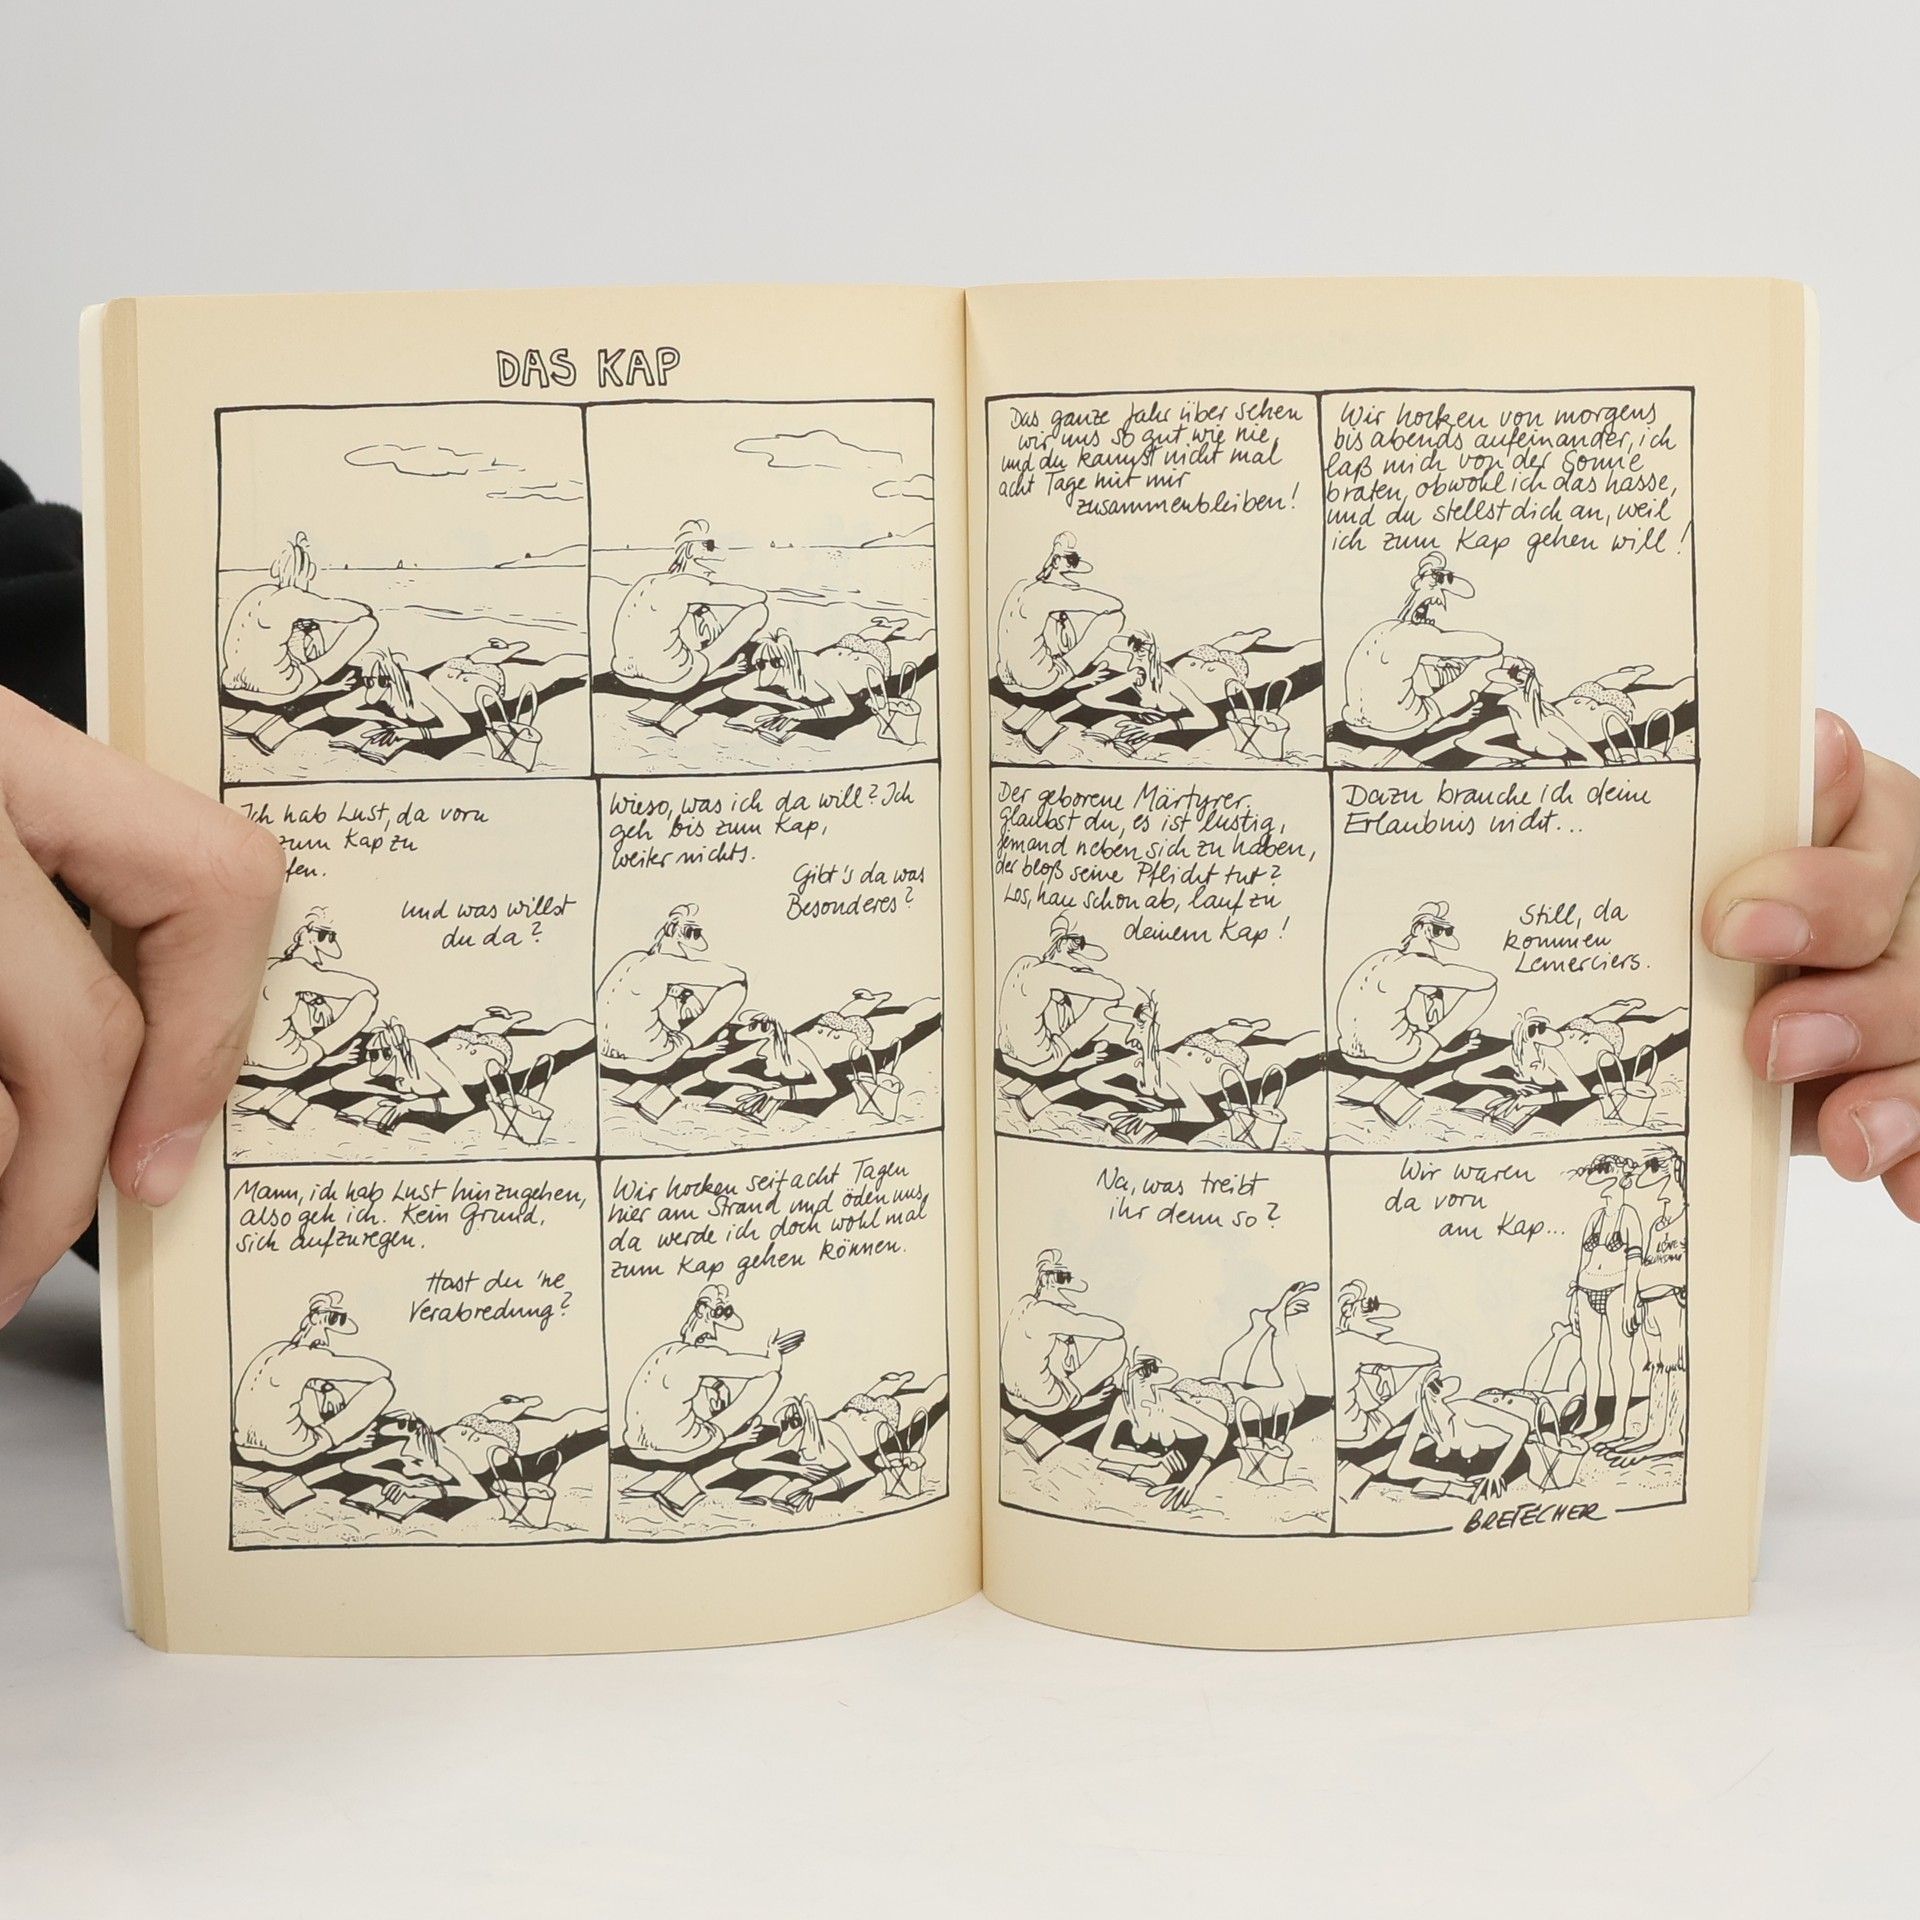 DAS KAP
Ich hab Lust, da vorn
zum Kap zu
fen.
Und was willst
du da?
Wieso, was ich da will? Ich
geh bis zum Kap,
weiter nichts.
Gibt's da was
Besonderes?
Mann, ich hab Lust hinzugehen,
also geh ich. Kein Grund,
sich aufzuregen.
Hast du 'ne
Verabredung?
Wir hocken seit acht Tagen
hier am Strand und öden uns,
da werde ich doch wohl mal
zum Kap gehen können.
Das ganze Jahr über sehen
wir uns so gut wie nie,
und du kannst nicht mal
acht Tage mit mir
zusammenbleiben!
Wir hocken von morgens
bis abends aufeinander, ich
laß mich von der Sonne
braten, obwohl ich das hasse,
und du stellst dich an, weil
ich zum Kap gehen will!
Der geborene Märtyrer.
Glaubst du, es ist lustig,
jemand neben sich zu haben,
der bloß seine Pflicht tut?
Los, hau schon ab, lauf zu
deinem Kap!
Dazu brauche ich deine
Erlaubnis nicht...
Still, da
kommen
Lemerciers.
Na, was treibt
ihr denn so?
Wir waren
da vorn
am Kap...
BRETECHER